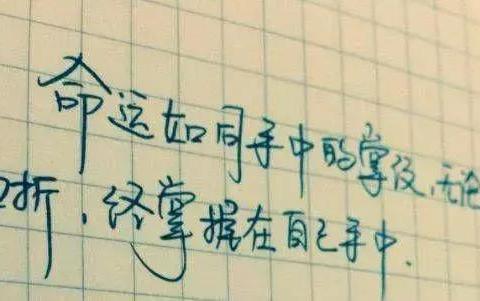 命运如同手中的掌纹,无论
折,终掌握在自己手中.